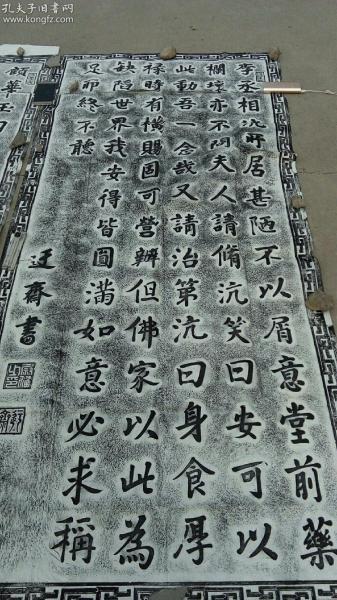 孔夫子旧书网
www.kongfz.com
李丞相沆所居甚陋不以屑意堂前藥
欄壞亦不問夫人請脩沆笑曰安可以
此動吾一念哉又請治第沆曰身食厚
祿時有橫賜固可營辦但佛家以此為
缺陷世界我安得皆圓滿如意必求稱
足卬終不聽
迂齋書
顏華玉曰